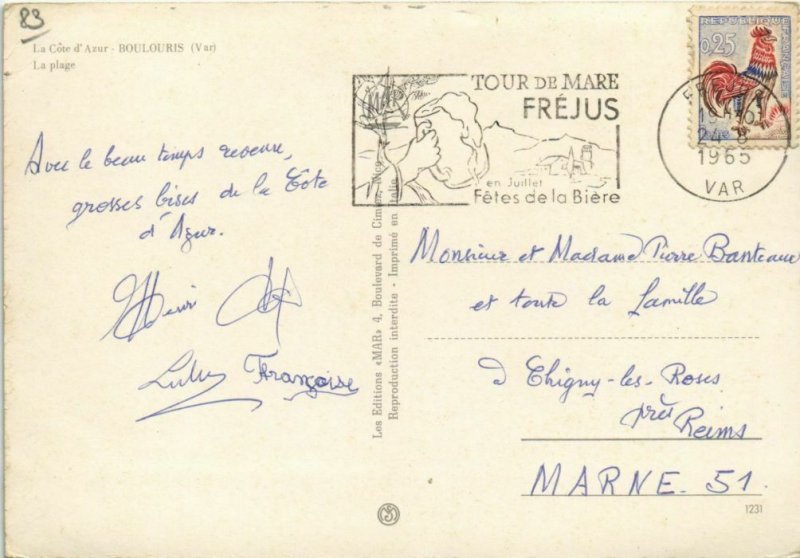 83
La Côte d'Azur - BOULOURIS (Var)
La plage
Avec le beau temps revenu,
grosses bises de la Côte
d'Azur.
Henri
Lulu Françoise
Les Editions «MAR» 4, Boulevard de Cimiez, Nice
Reproduction interdite - Imprimé en Italie
TOUR DE MARE
FRÉJUS
en Juillet
Fêtes de la Bière
REPUBLIQUE FRANÇAISE
0,25
1965
VAR
Monsieur et Madame Pierre Banteaux
et toute la famille
à Chigny-les-Roses
près Reims
MARNE. 51.
1231